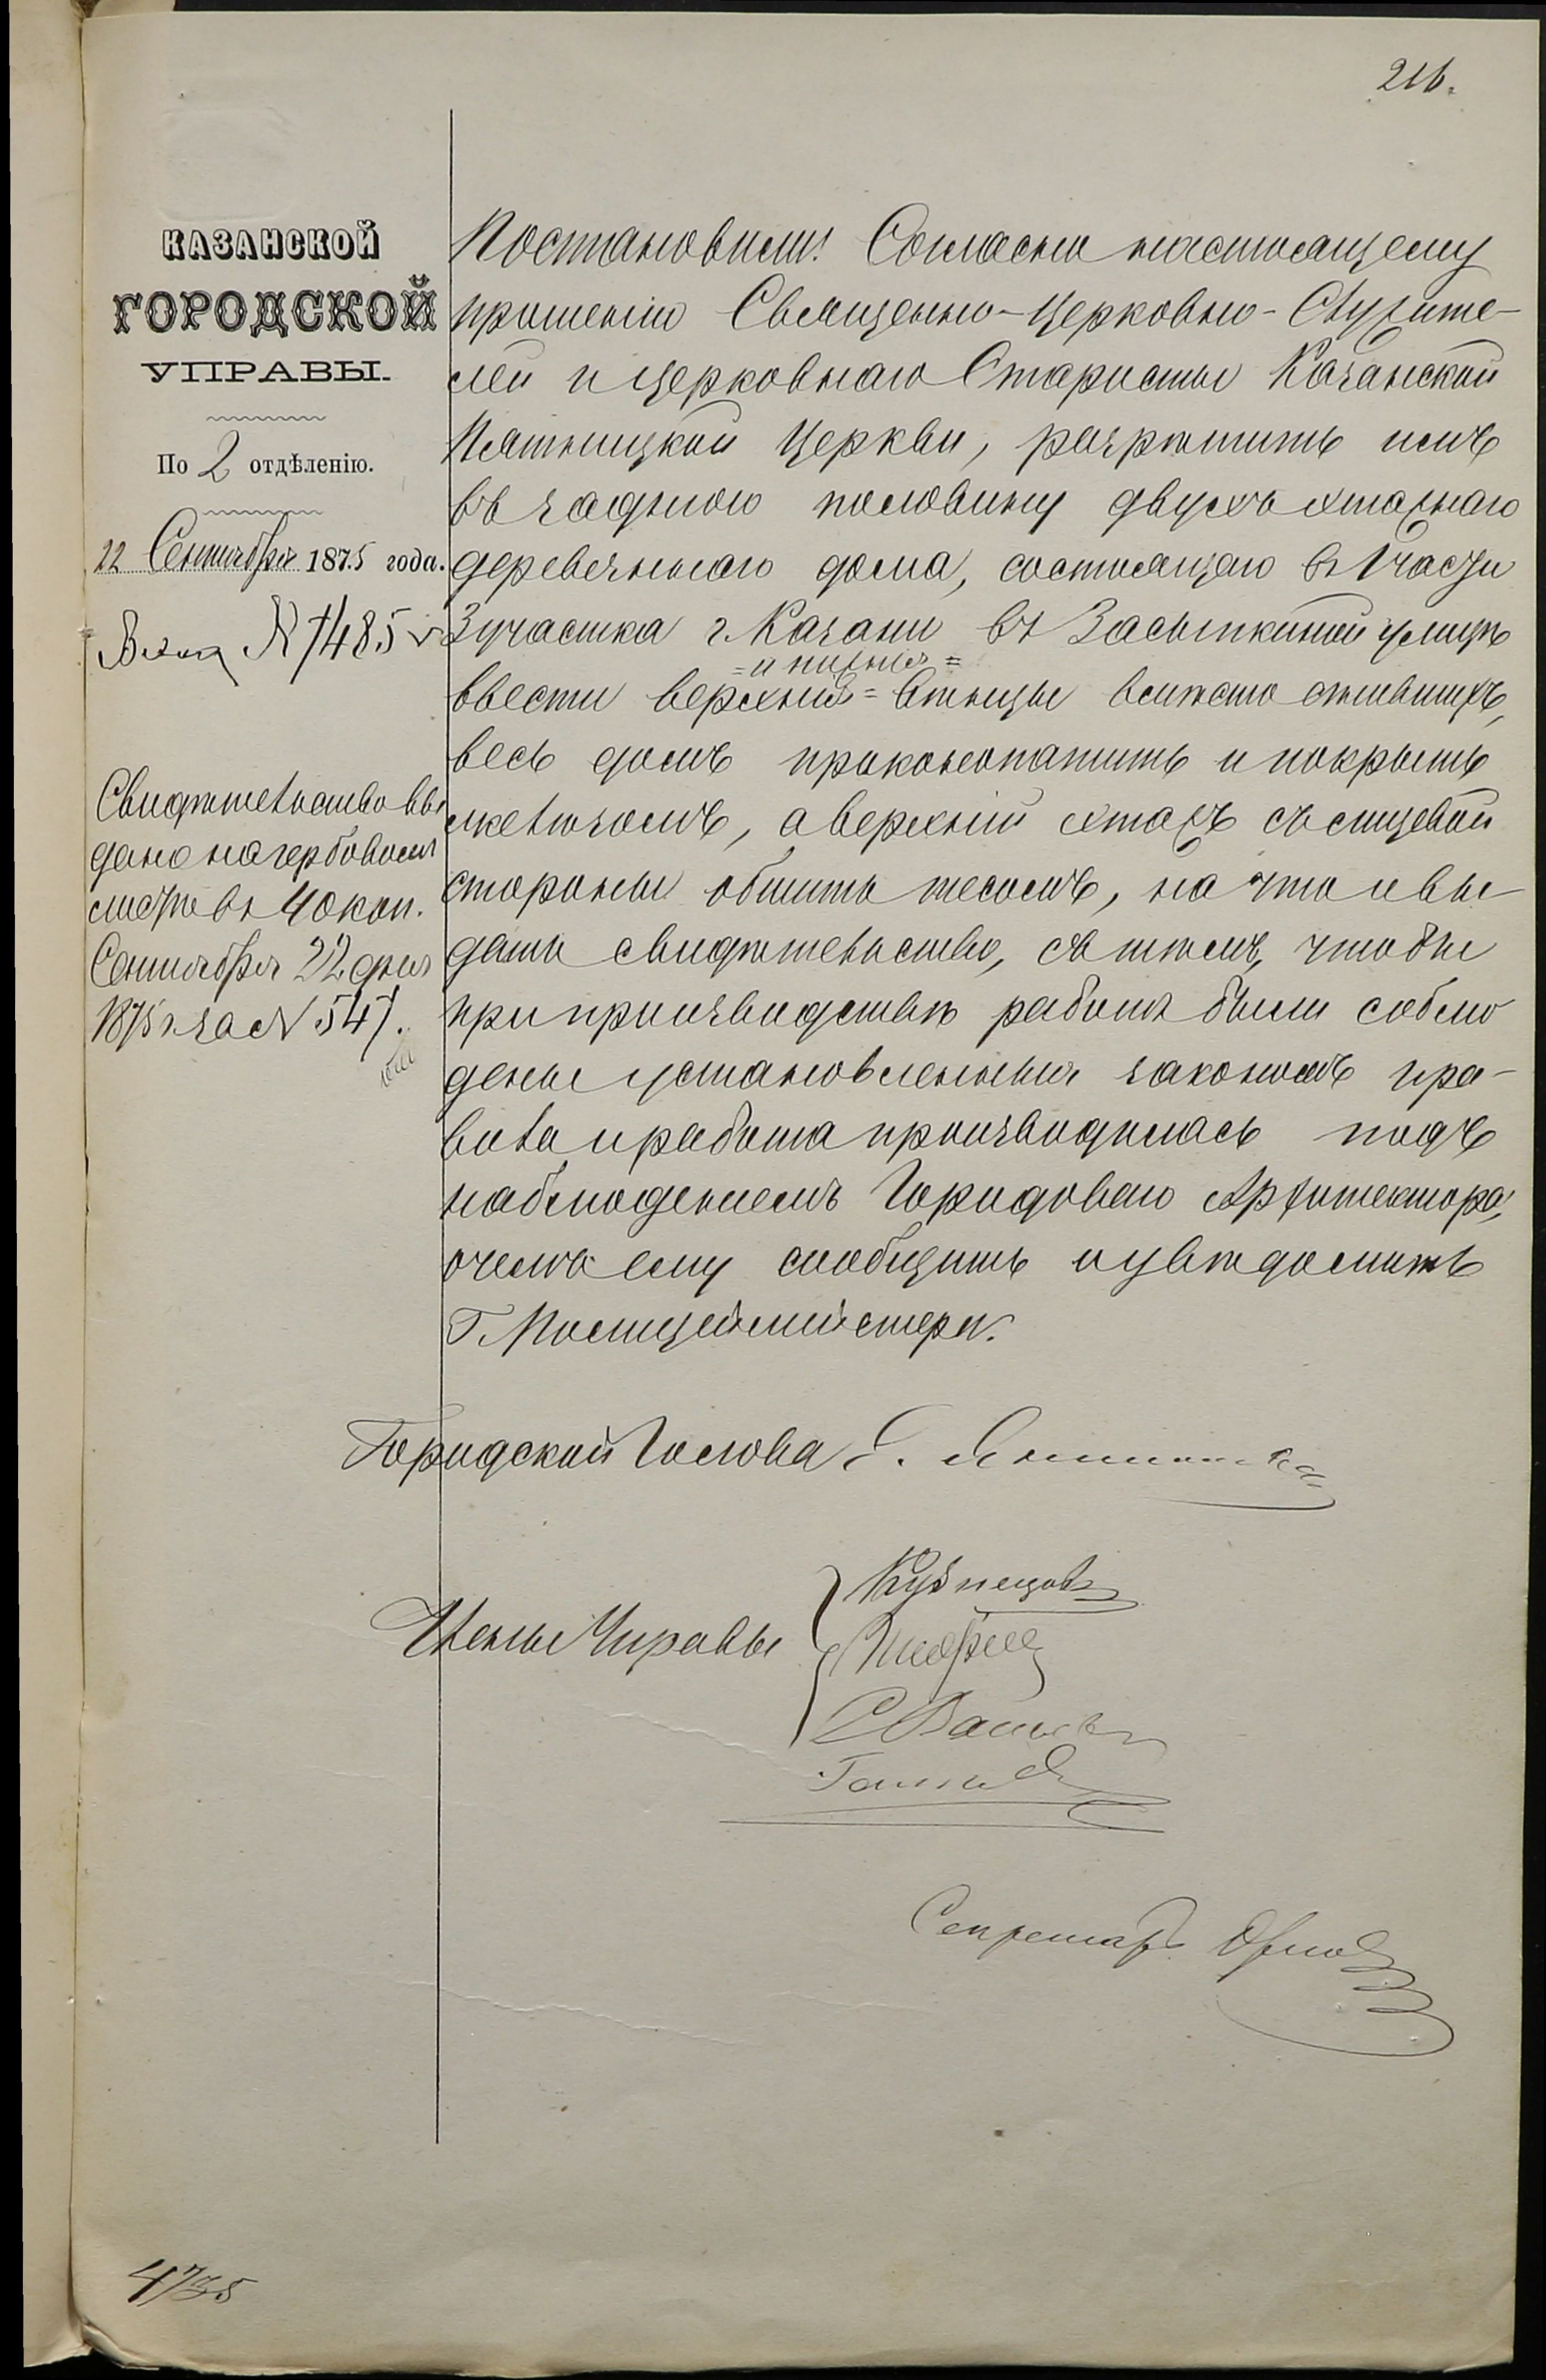 216.
КАЗАНСКОЙ
ГОРОДСКОЙ
УПРАВЫ.
По 2 отдѣленію.
22 Сентября 1875 года.
№ 7485
Свидѣтельство вы
дано на гербовомъ
листѣ въ 40 коп.
Сентября 22 дня
1875 г. за № 547.
Постановили: Согласно настоящему
прошенію Священно-Церковно-Служите-
лей и церковнаго Старосты Казанской
Пятницкой Церкви, разрѣшить имъ
въ заднюю половину двухъ этажнаго
деревяннаго дома, состоящаго въ 1 части
3 участка г. Казани въ Засыпкиной улицѣ
= и нижнія =
ввести верхнія = вѣнцы вмѣсто сгнившихъ,
весь домъ проконопатить и покрыть
желѣзомъ, а верхній этажъ съ лицевой
стороны обшить тесомъ, на что и вы-
дать свидѣтельство, съ тѣмъ, чтобы
при производствѣ работъ были соблю
дены установленныя закономъ пра-
вила и работа производилась подъ
наблюденіемъ Городоваго Архитектора,
о чемъ ему сообщить и увѣдомить
Г. Полицеймейстера.
Городской Голова Э. Янишевскій
Члены Управы
Кузнецовъ
Секретарь Орловъ
4735